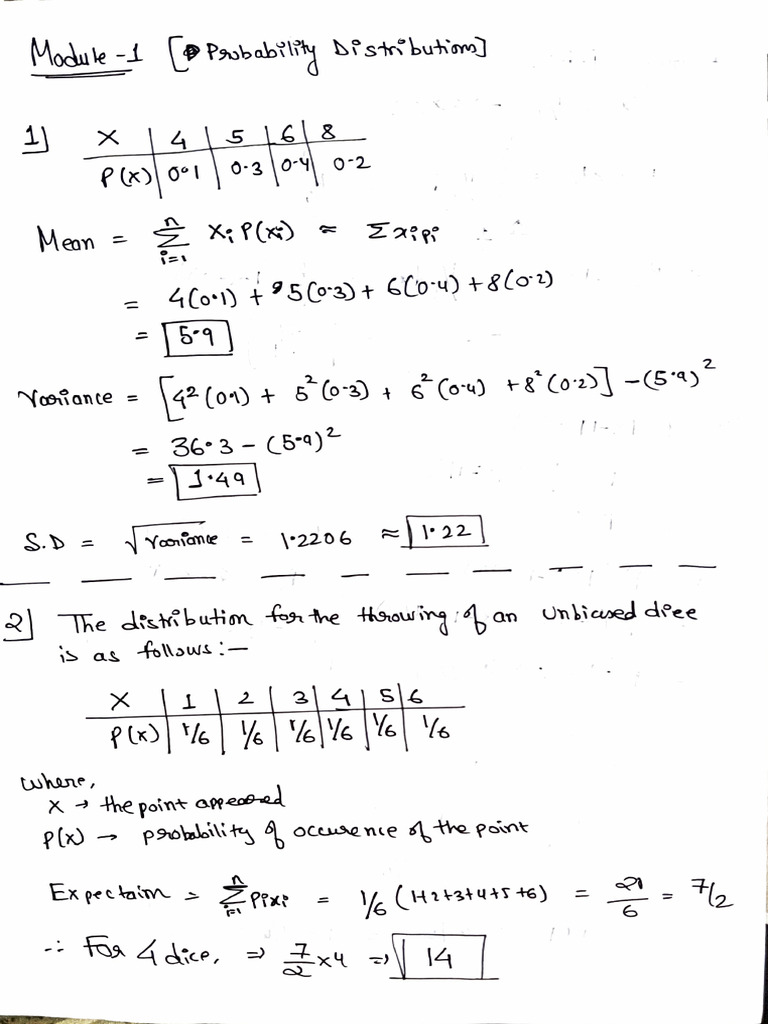 Module-1 [Probability Distributions]
1] X | 4 | 5 | 6 | 8
P(x) | 0.1 | 0.3 | 0.4 | 0.2
Mean = n Σ i=1 Xi P(xi) ≈ Σxipi
= 4(0.1) + 5(0.3) + 6(0.4) + 8(0.2)
= 5.9
Variance = [4²(0.1) + 5²(0.3) + 6²(0.4) + 8²(0.2)] - (5.9)²
= 36.3 - (5.9)²
= 1.49
S.D = √Variance = 1.2206 ≈ 1.22
2] The distribution for the throwing of an unbiased dice
is as follows:-
X | 1 | 2 | 3 | 4 | 5 | 6
P(x) | 1/6 | 1/6 | 1/6 | 1/6 | 1/6 | 1/6
where,
X → the point appeared
P(x) → probability of occurence of the point
Expectaion = n Σ i=1 Pixi = 1/6 (1+2+3+4+5+6) = 21/6 = 7/2
∴ For 4 dice, ⇒ 7/2 x4 ⇒ 14